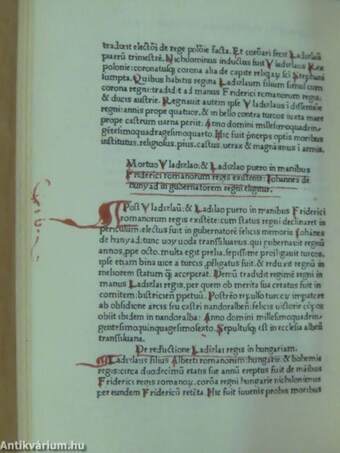 tradidit electiōi de rege polōie facta. Et corōari fecit Ladislaū
paruū trimestrē. Nichilominus inductus fuit Vladislaus Rex
polonie: coronatusqȝ corona aha de capite reliqaȝ sci Stephani
sumpta. Quibus habitis regina Ladislaum filium simul cum
corona regni: tradidit ad manus Friderici romanorum regis:
& ducis austrie. Regnauit autem ipse Vladislaus ī dissensiōe
regni: annis prope quatuor, & in bello contra turcos iuxta mare
prope castrum userna periit. Anno domini millesimoquadrin
gētesimoquadragesimoquarto. Hic fuit pnceps optis moribus
institutus, religiosus, pius, castus, uerax & magnanimus ī armis.
Mortuo Vladislao; & Ladislao puero in manibus
Friderici romanorum regis existente: Iohannes de
hunyad in gubernatorem regni eligitur.
POst Vladislaū; & Ladislao puero in manibus Friderici
romanorum regis existēte: cum status regni declinaret in
periculum, electus fuit in gubernatorē felicis memoris Iohānes
de hunyad: tunc uoyuoda transsiluanus, qui gubernauit regnū
annos, ppe octo, multa egit prelia, sepissime profligauit turcos,
ipse etiam bina uice a turcis, pfligatus fuit, & reduxit regnū in
meliorem statum q̄ acceperat. Demū tradidit regimē regni in
manus Ladislai regis, per quem ob merita sua creatus fuit in
comitem bistricień ppetuū. Postremo repulso turcoȝ impatore
ab obsidione arcis seu castri nandoralben: felicis uictis eo copiis
obiit ibidem in nandoralba: Anno domini millesimoquadrin-
gentesimoquinquagesimosexto, Sepultusqȝ est in ecclesia albeń
transsiluana.
De reductione Ladislai regis in hungariam.
LAdislaus filius Alberti romanorum: hungarie: & bohemie
regis: circa duodecimū etatis sue annū ereptus fuit de māibus
Friderici regis romanoȝ, corōa regni hungarie nihilominus
per eundem Fridericū retēta. Hic fuit iouenis probis moribus
Antikvárium.hu